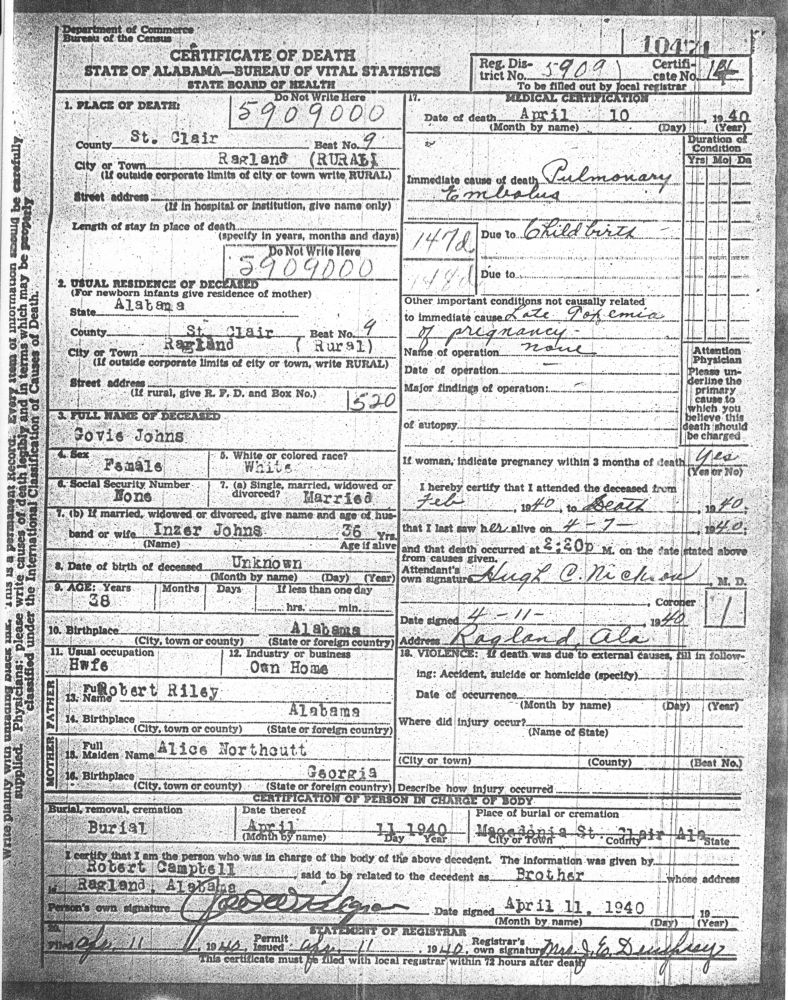 Department of Commerce
Bureau of the Census
CERTIFICATE OF DEATH
STATE OF ALABAMA—BUREAU OF VITAL STATISTICS
STATE BOARD OF HEALTH
Reg. District No. 5909
Certificate No. 14
To be filled out by local registrar
Write plainly with unfading black ink. This is a permanent Record. Every item of information should be carefully
supplied. Physicians: please write causes of death legibly and in terms which may be properly
classified under the International Classification of Causes of Death.
1. PLACE OF DEATH:
Do Not Write Here
5909000
County St. Clair Beat No. 9
City or Town Ragland (RURAL)
(If outside corporate limits of city or town write RURAL)
Street address
(If in hospital or institution, give name only)
Length of stay in place of death
(specify in years, months and days)
Do Not Write Here
5909000
2. USUAL RESIDENCE OF DECEASED
(For newborn infants give residence of mother)
State Alabama
County St. Clair Beat No. 9
City or Town Ragland (Rural)
(If outside corporate limits of city or town, write RURAL)
Street address
(If rural, give R. F. D. and Box No.)
520
3. FULL NAME OF DECEASED
Govie Johns
4. Sex
Female
5. White or colored race?
White
6. Social Security Number
None
7. (a) Single, married, widowed or divorced? Married
7. (b) If married, widowed or divorced, give name and age of hus-
band or wife Inzer Johns 36 Yrs.
(Name) Age if alive
8. Date of birth of deceased Unknown
(Month by name) (Day) (Year)
9. AGE: Years Months Days If less than one day
38 hrs. min.
10. Birthplace Alabama
(City, town or county) (State or foreign country)
11. Usual occupation
Hwfe
12. Industry or business
Own Home
FATHER
13. Full Name Robert Riley
14. Birthplace Alabama
(City, town or county) (State or foreign country)
MOTHER
15. Full Maiden Name Alice Northcutt
16. Birthplace Georgia
(City, town or county) (State or foreign country)
17. MEDICAL CERTIFICATION
Date of death April 10 1940
(Month by name) (Day) (Year)
Duration of Condition
Yrs Mo Da
Immediate cause of death Pulmonary
Embolus
147d Due to Childbirth
148d Due to
Other important conditions not causally related
to immediate cause Late Toxemia
of pregnancy -
Name of operation none
Date of operation
Major findings of operation:
of autopsy
Attention Physician
Please underline the primary cause to which you believe this death should be charged
If woman, indicate pregnancy within 3 months of death Yes
(Yes or No)
I hereby certify that I attended the deceased from
Feb, 1940, to Death, 1940,
that I last saw her alive on 4-7-, 1940,
and that death occurred at 2:20p M. on the date stated above
from causes given.
Attendant's own signature Hugh C. Nickson, M. D.
Coroner
Date signed 4-11- 1940
1
Address Ragland, Ala
18. VIOLENCE: If death was due to external causes, fill in follow-
ing: Accident, suicide or homicide (specify)
Date of occurrence
(Month by name) (Day) (Year)
Where did injury occur?
(Name of State)
(City or town) (County) (Beat No.)
Describe how injury occurred
CERTIFICATION OF PERSON IN CHARGE OF BODY
Burial, removal, cremation Date thereof Place of burial or cremation
Burial April 11 1940 Macedonia St. Clair Ala
(Month by name) Day Year City or Town County State
I certify that I am the person who was in charge of the body of the above decedent. The information was given by
Robert Campbell, said to be related to the decedent as Brother whose address
is Ragland, Alabama
Person's own signature Date signed April 11, 1940 19
(Month by name) (Day) (Year)
20. STATEMENT OF REGISTRAR
Filed Apr. 11 1940 Permit Issued Apr. 11, 1940, Registrar's own signature Mrs. J. E. Dempsey
This certificate must be filed with local registrar within 72 hours after death